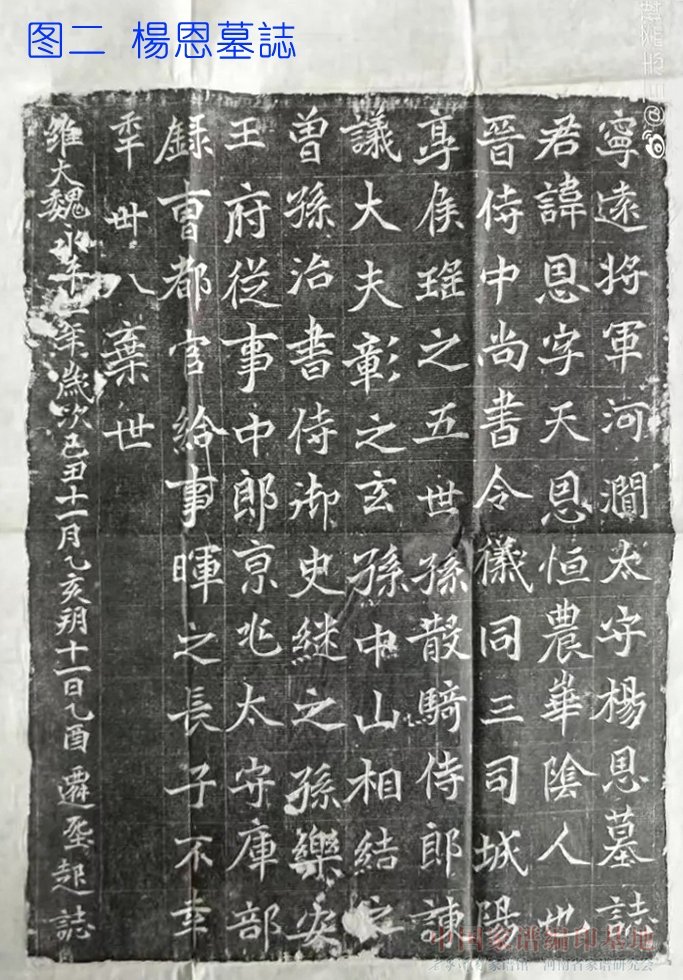 图二 楊恩墓誌
寧遠将軍河澗太守楊恩墓誌
君諱恩字天恩恒農華陰人也
晉侍中尚書令儀同三司城陽
亭侯瑤之五世孫散騎侍郎諫
議大夫彰之玄孫中山相結之
曽孫治書侍御史継之孫樂安
王府從事中郎京兆太守庫部
録曺都官給事暉之長子不幸
年卌八棄世
維大魏永平二年歲次己丑十一月乙亥朔十一日乙酉遷墍起誌
中国家谱编印基地